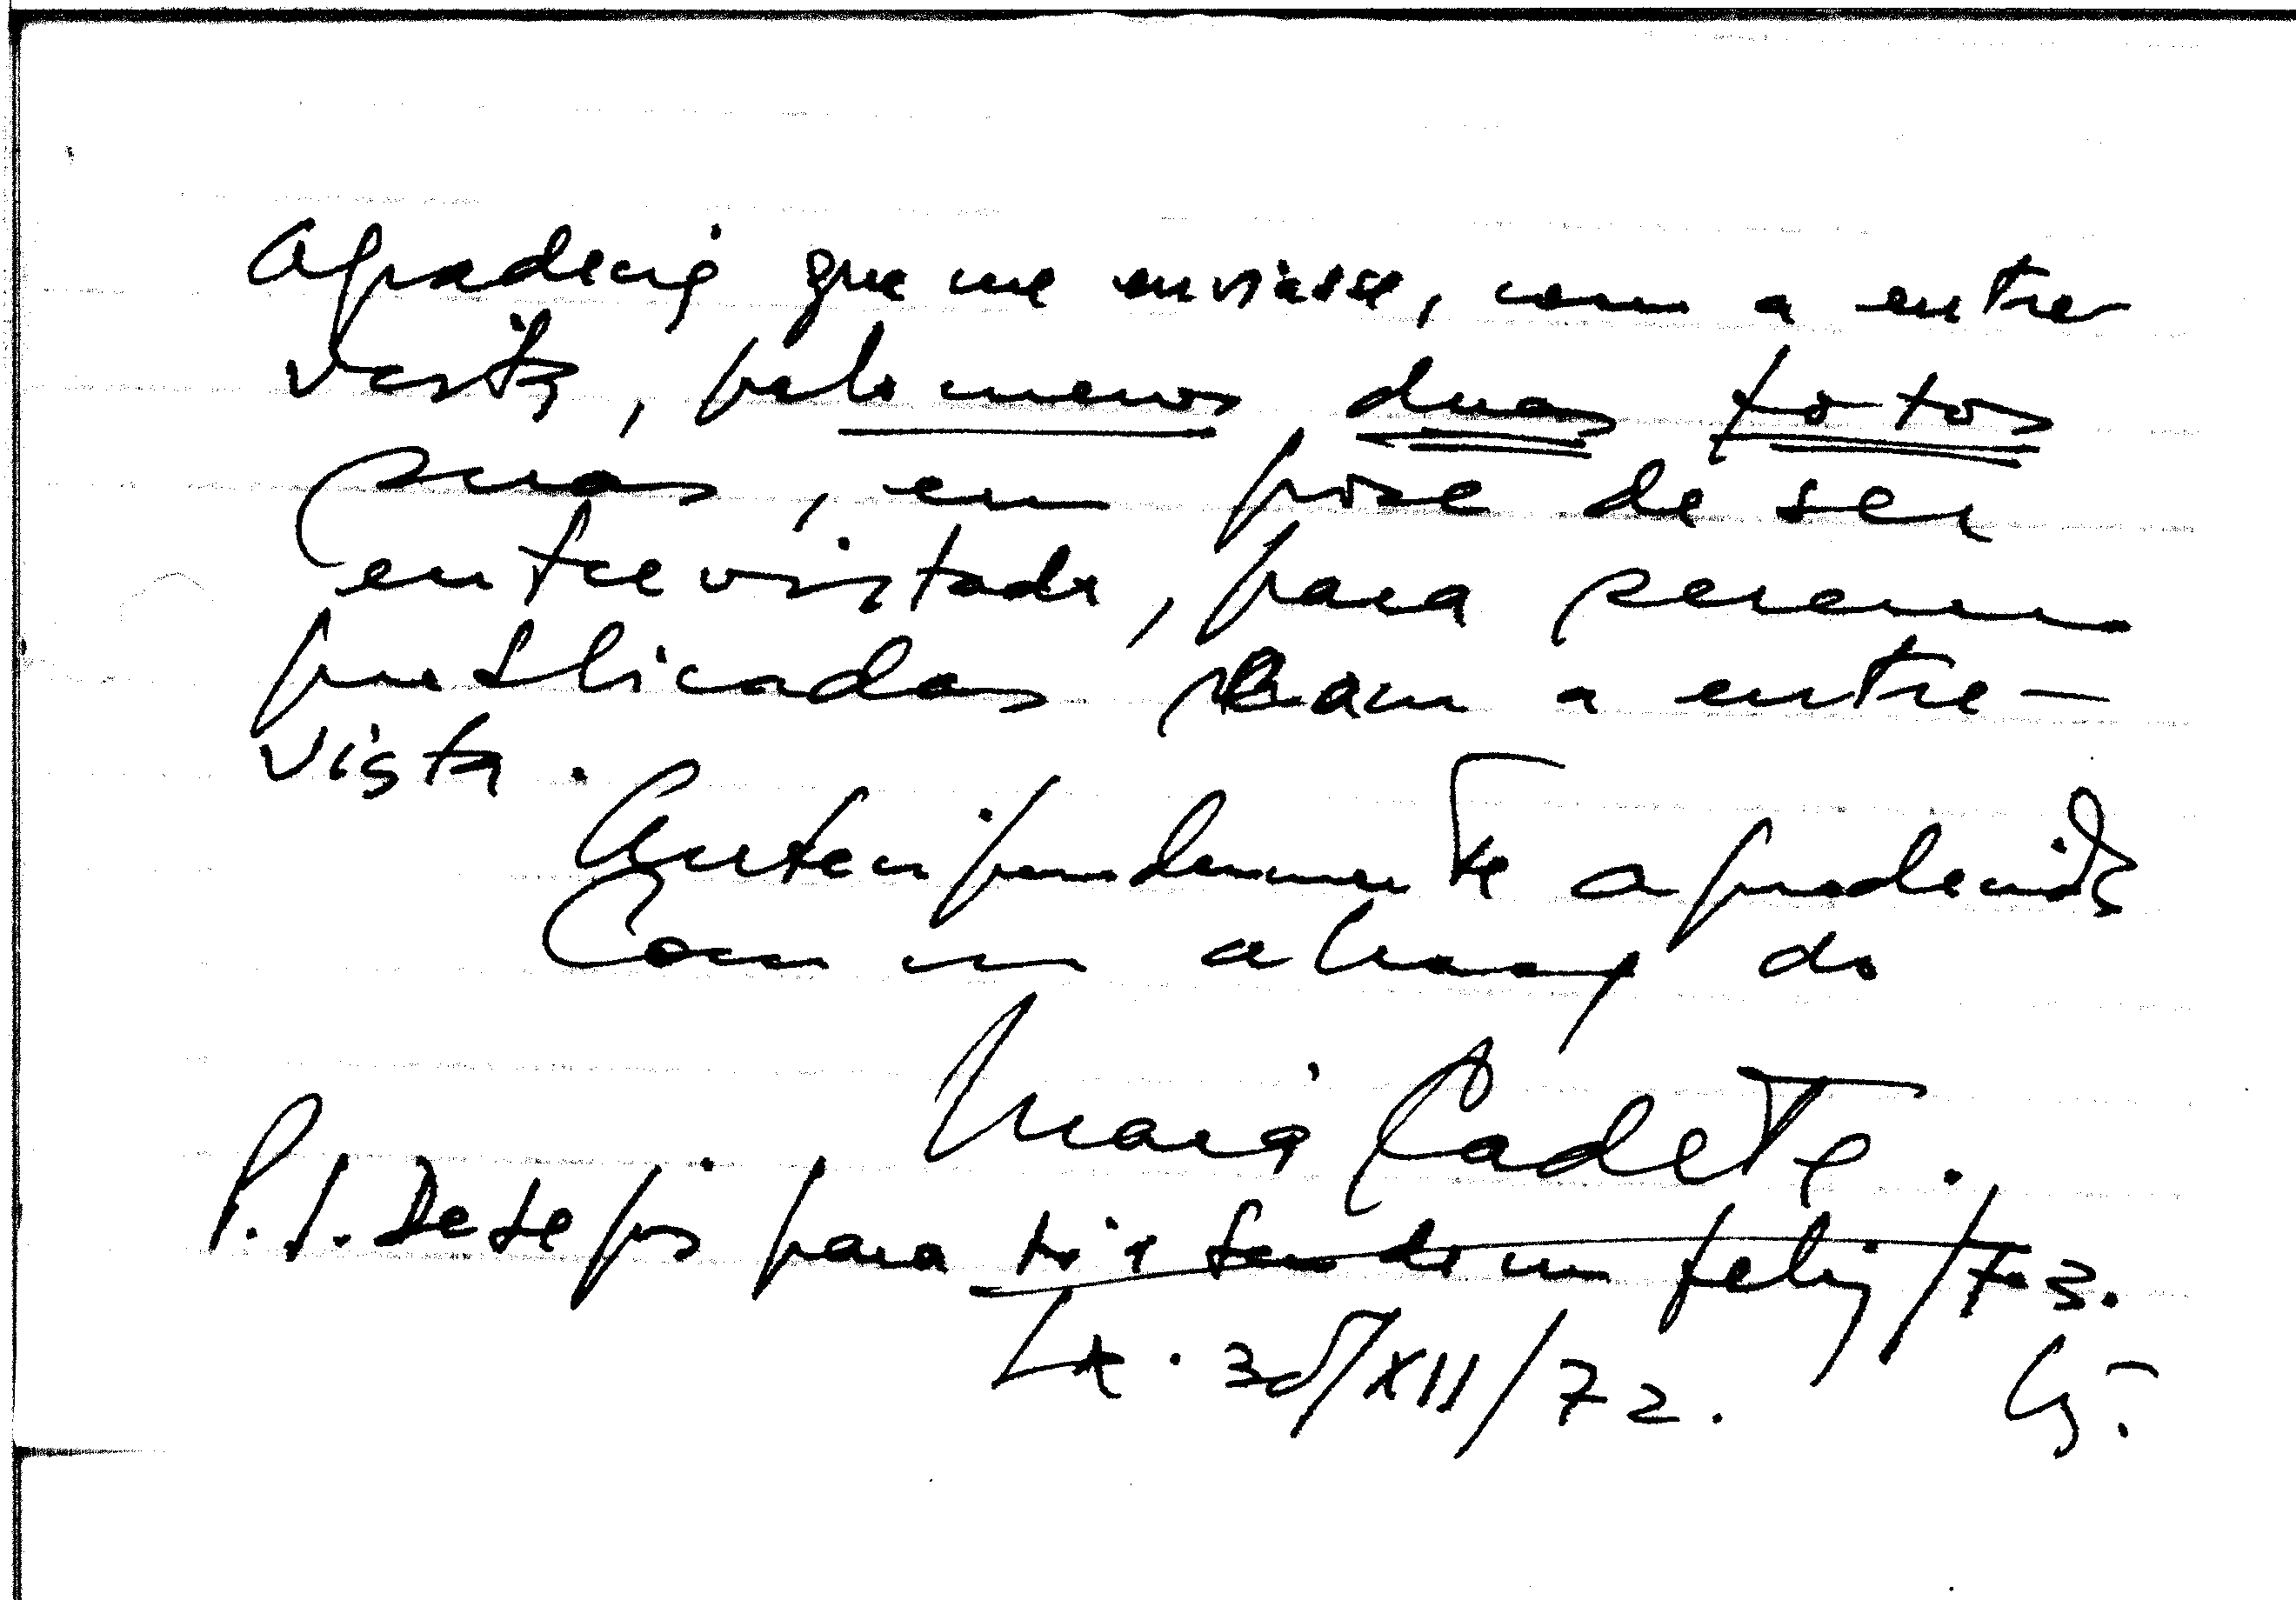 Agradecia que me enviasse, com a entre
vista, pelo menos duas fotos
suas, em pose de ser
entrevistado, para serem
publicadas com a entre-
vista.
Antecipadamente agradecido
Com um abraço do
Maia Cadete.
P.S. Desejos para ti e de um feliz 73.
Lx. 30/XII/72.